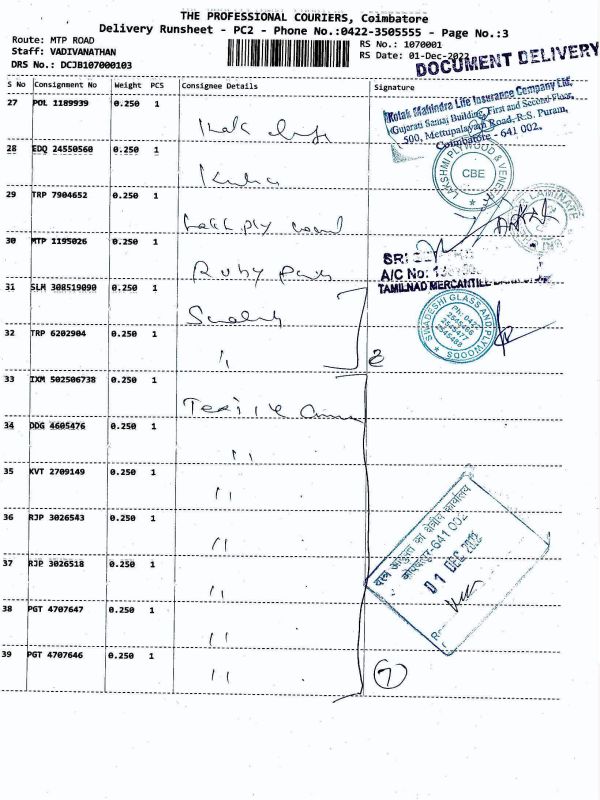 THE PROFESSIONAL COURIERS, Coimbatore
Delivery Runsheet - PC2 - Phone No.:0422-3505555 - Page No.:3
Route: MTP ROAD
Staff: VADIVANATHAN
DRS No.: DCJB107000103
RS No.: 1070001
RS Date: 01-Dec-2022
DOCUMENT DELIVERY
S No Consignment No Weight PCS Consignee Details Signature
27 POL 1189939 0.250 1
Kotak Mahindra Life Insurance Company Ltd.
Gujarati Samaj Building, First and Second Floor,
500, Mettupalayam Road, R.S. Puram,
Coimbatore - 641 002.
28 EDQ 24550560 0.250 1
LAKSHMI PLYWOOD & VENEER
CBE
29 TRP 7904652 0.250 1
LAMINATE
30 MTP 1195026 0.250 1
Ruby
SRI
A/C No:
TAMILNAD MERCANTILE
31 SLM 308519090 0.250 1
SWADESHI GLASS AND PLYWOODS
32 TRP 6202904 0.250 1
"
2
33 IXM 502506738 0.250 1
34 DDG 4605476 0.250 1
"
35 KVT 2709149 0.250 1
"
36 RJP 3026543 0.250 1
"
37 RJP 3026518 0.250 1
"
38 PGT 4707647 0.250 1
"
39 PGT 4707646 0.250 1
"
7
वस्त्र आयुक्त का क्षेत्रीय कार्यालय
कोयम्बत्तूर-641 002
01 DEC 2022